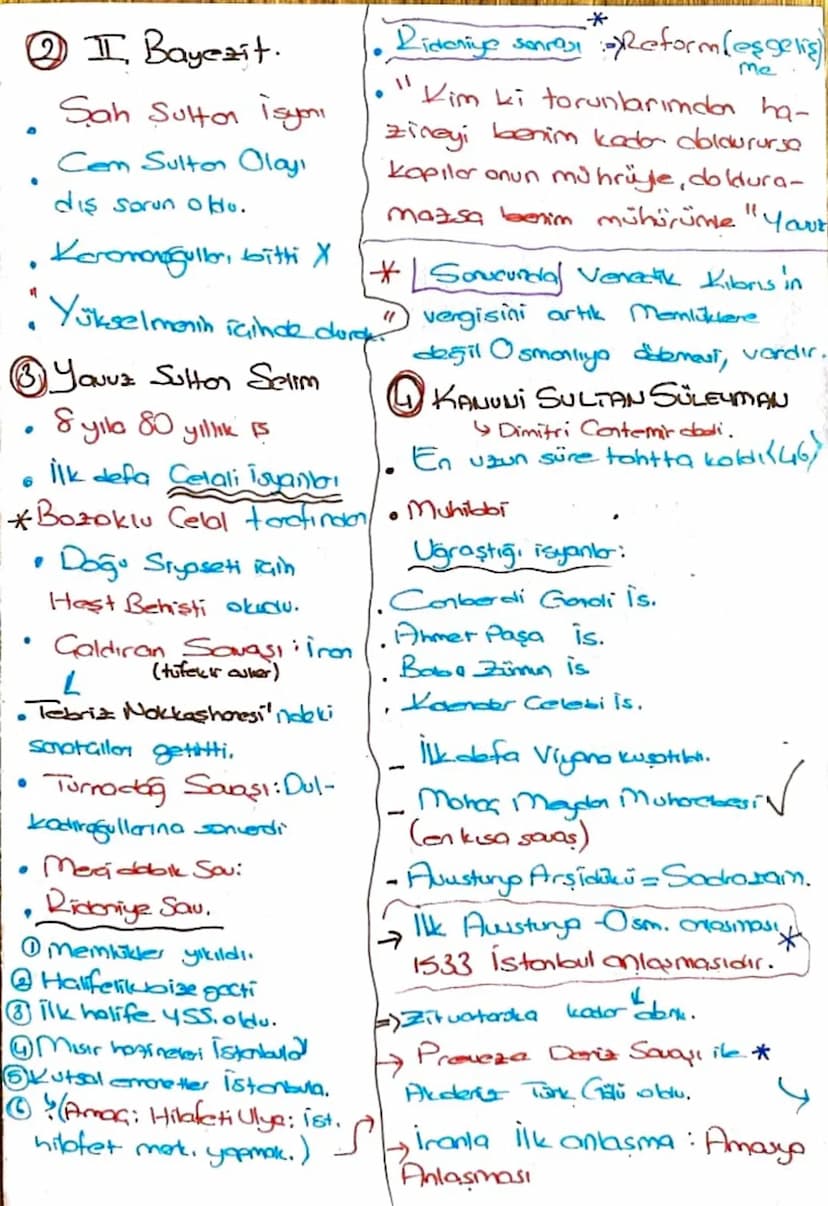 ② II. Bayezit.
• Şah Sultan İsyanı
• Cem Sultan Olayı
dış sorun oldu.
• Karamanoğulları bitti X
• "Yükselmenin içinde durak."
③ Yavuz Sultan Selim
• 8 yıla 80 yıllık iş
• İlk defa Celali İsyanları
* Bozoklu Celal tarafından
• Doğu Siyaseti için
Heşt Behişti okudu.
• Çaldıran Savaşı : İran
(tüfekli asker)
• Tebriz Nakkaşhanesi'ndeki
sanatçıları getitti.
• Turnadağ Savaşı : Dul-
kadiroğullarına sonverdi
• Mercidabık Sav:
• Ridaniye Sav.
① Memlükler yıkıldı.
② Halifelik bize geçti
③ İlk halife YSS. oldu.
④ Mısır hazineleri İstanbula
⑤ Kutsal emanetler İstanbula.
⑥ (Amaç: Hilafeti Ulya: ist.
hilafet merk. yapmak.)
• Ridaniye sonrası * => Reform (eşgeliş
me
• "Kim ki torunlarımdan ha-
zineyi benim kadar doldurursa
kapılar onun mührüyle, doldura-
mazsa benim mühürümle" Yavuz
* Sonucunda Venedik Kıbrıs'ın
vergisini artık Memlüklere
değil Osmanlıya ödemesi, vardır.
④ KANUNİ SULTAN SÜLEYMAN
↳ Dimitri Cantemir dedi.
• En uzun süre tahtta kaldı (46)
• Muhibbi
Uğraştığı isyanlar:
• Canberdi Gazali İs.
• Ahmet Paşa İs.
• Baba Zünun İs
• Kalender Çelebi İs.
- İlk defa Viyana kuşatıldı.
- Mohaç Meydan Muharebesi ✓
(en kısa savaş)
- Avusturya Arşidükü = Sadrazam.
→ İlk Avusturya - Osm. anlaşması *
1533 İstanbul anlaşmasıdır.
=> Zitvatoruka kadar
→ Preveze Deniz Savaşı ile *
Akdeniz Türk Gölü oldu.
→ İranla İlk anlaşma : Amasya
Anlaşması